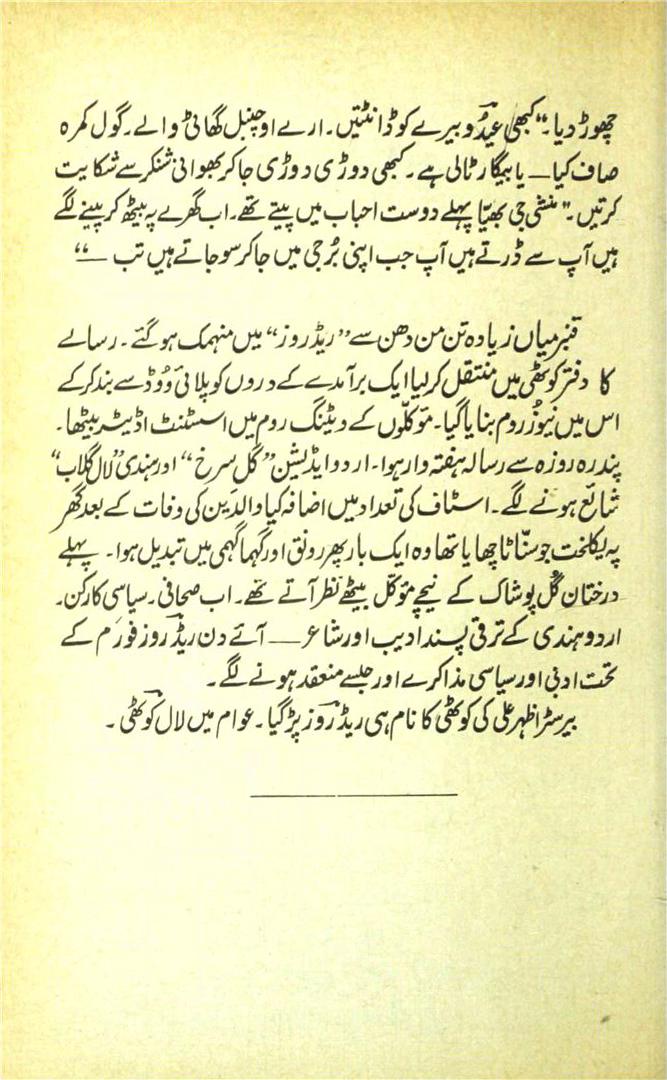 چھوڑ دیا۔“ کبھی عیدُو بیرے کو ڈانٹتیں۔ ارے او چنبل گھاٹی ڈوالے۔ گول کمرہ
صاف کیا — یا بیگار ٹالی ہے۔ کبھی دوڑی دوڑی جا کر بھوانی شنکر سے شکایت
کرتیں۔ ”منشی جی بھیّا پہلے دوست احباب میں پیتے تھے۔ اب گھرے پہ بیٹھ کر پینے لگے
ہیں آپ سے ڈرتے ہیں آپ جب اپنی بُرجی میں جا کر سو جاتے ہیں تب —“
قنبر میاں زیادہ تن من دھن سے ”ریڈ روز“ میں منہمک ہو گئے۔ رسالے
کا دفتر کوٹھی میں منتقل کر لیا ایک برآمدے کے دروں کو پلائی وُوڈ سے بند کر کے
اس میں نیوز روم بنایا گیا۔ موکلّوں کے ویٹنگ روم میں اسسٹنٹ اڈیٹر بیٹھا۔
پندرہ روزہ سے رسالہ ہفتہ وار ہوا۔ اردو ایڈیشن ”گل سرخ“ اور ہندی ”لال گلاب“
شائع ہونے لگے۔ اسٹاف کی تعداد میں اضافہ کیا والدَین کی وفات کے بعد گھر
پہ یکلخت جو سنّاٹا چھایا تھا وہ ایک بار پھر رونق اور گہما گہمی میں تبدیل ہوا۔ پہلے
درختان گُل پوشاک کے نیچے موکّل بیٹھے نظر آتے تھے۔ اب صحافی۔ سیاسی کارکن۔
اردو ہندی کے ترقی پسند ادیب اور شاعر — آئے دن ریڈ روز فورَم کے
تحت ادبی اور سیاسی مذاکرے اور جلسے منعقد ہونے لگے۔
بیرسٹر اظہر علی کی کوٹھی کا نام ہی ریڈ روز پڑ گیا۔ عوام میں لال کوٹھی۔